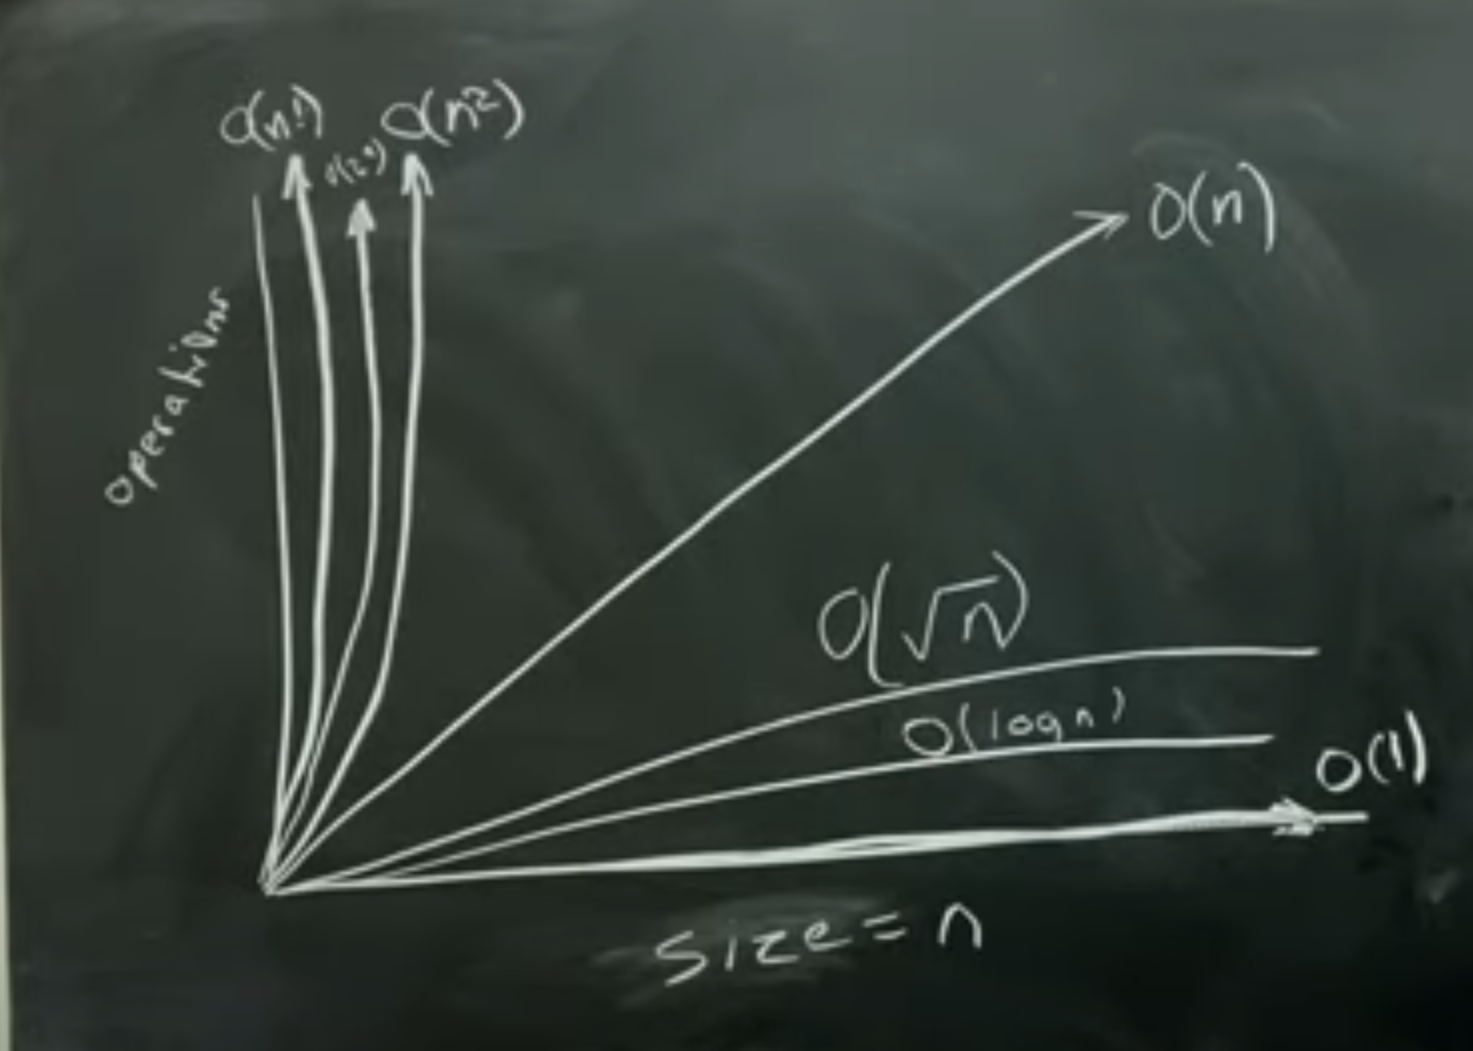 O(n!)
O(2ⁿ)
O(n²)
O(n)
operations
O(√n)
O(log n)
O(1)
size = n